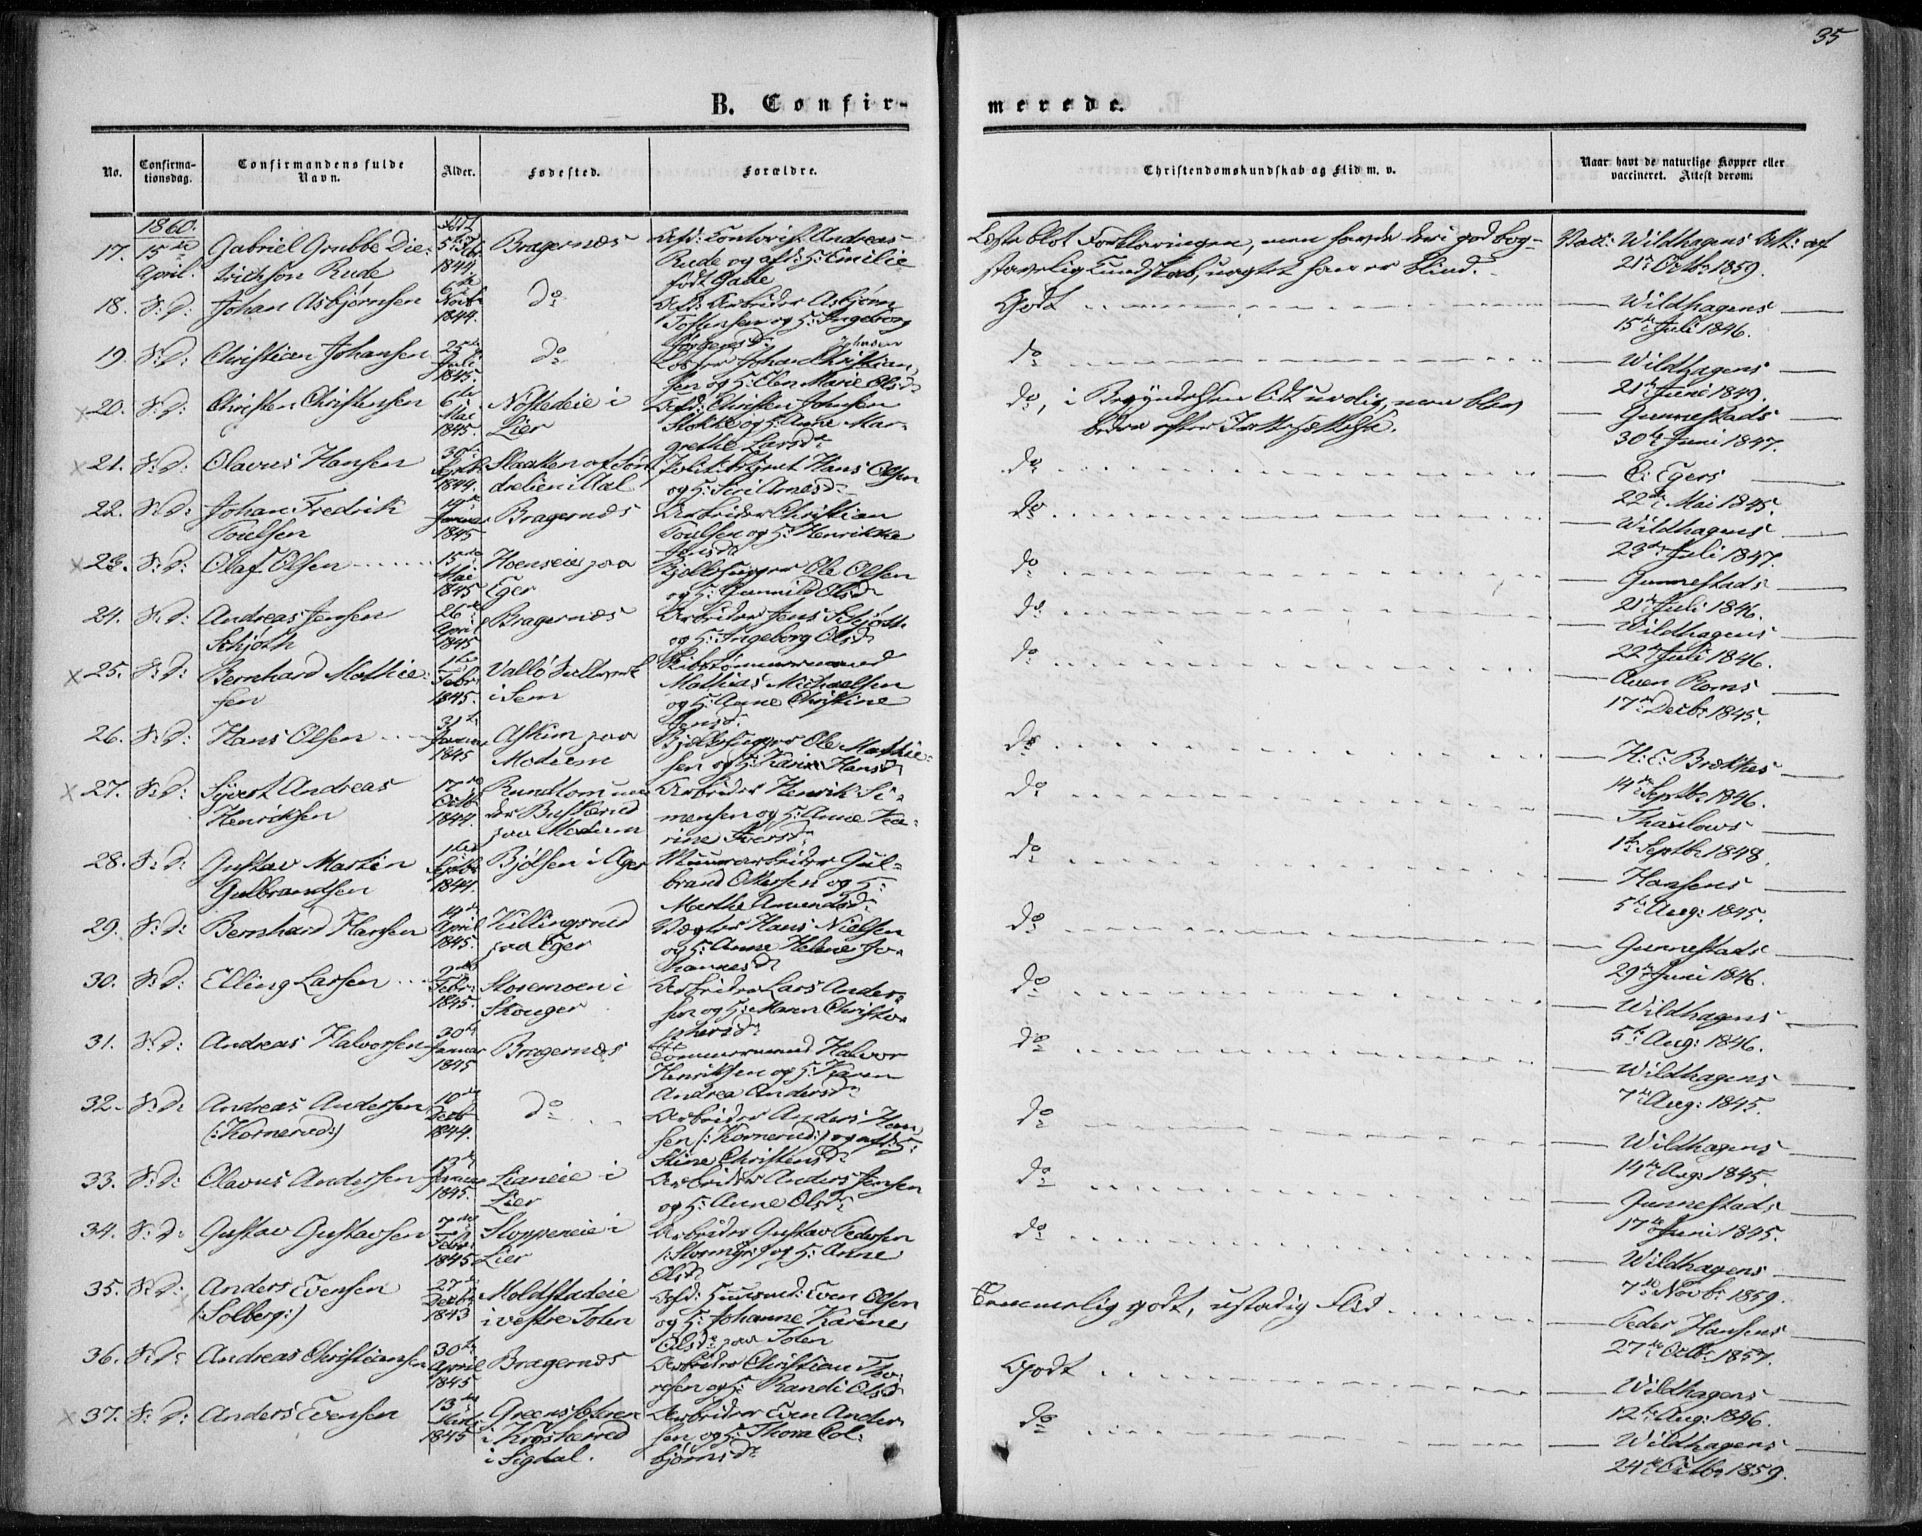 35
B. Confir-
merede.
No.
Confirma-
tionsdag.
Confirmandens fulde
Navn.
Alder.
Fødested.
Forældre.
Christendomskundskab og Flid m. v.
Naar havt de naturlige Kopper eller
vaccineret. Attest derom.
1860.
17. 15de April. Gabriel Grubbe Die-
trichson Rude
1844. Bragernæs
Contorist Andreas
Rude og afd: H: Emilie
født Gade
Læste blot Forklaringen, men havde deri god bog-
stavelig Kundskab, uagtet han er blind.
Vatt: Wildhagens Att: af
21de Octbr 1859.
18. S: D: Johan Asbjørnsen
6te Novbr 1844. do
Arbeider Asbjørn
Tostensen og H: Ingeborg
Godt
Wildhagens
15de Juli 1846.
19. S: D: Christian Johansen
25de Juli 1845. do
Johan Christian-
sen og H: Elen Marie Olsdr
do
Wildhagens
21de Juni 1849.
20. S: D: Christen Christensen
6te Mai 1845. Nøstedeie i
Lier
Christen Johnsen
Stokke og H: Anne Mar-
grethe Larsdr
do, i Begyndelsen lidt uvillig, men blev
bedre efter
Gunnestads
30te Juni 1847.
21. S: D: Olavus Hansen
30te 1844.
Hans Olsen
og H: Siri Arnesdr
do
E: Egers
22de Mai 1845.
22. S: D: Johan Fredrik
Poulsen
Januar 1845 Bragernæs
Arbeider Christian
Poulsen og H: Henrikke
Jensdr
do
Wildhagens
23de Juli 1847.
23. S: D: Olaf Olsen
15de Mai 1845 Hoenseie paa
Eger
Ole Olsen
og H: Gunnild Olsdr
do
Gunnestads
21de Juli 1846.
24. S: D: Andreas Jensen
Schjøth
26de April 1845 Bragernæs
Arbeider Jens Schjøth
og H: Ingeborg Olsdr
do
Wildhagens
22de Juli 1846.
25. S: D: Bernhard Mathie-
sen
1te Febr 1845. Vallø Saltverk
i Sem
Skibstømmermand
Mathias Michaelsen
og H: Anne Christine
Jensdr
do
Aven Roms
17de Decbr 1845.
26. S: D: Hans Olsen
31te Januar 1845 Askim paa
Modum
Ole Mathie-
sen og H: Karine Hansdr
do
H: C: Brøttes
14de Septbr 1846.
27. S: D: Sivert Andreas
Henriksen
17de Octb 1844. Rundtom un-
der Buskerud
paa Modum
Arbeider Henrik Si-
mensen og H: Anne Ka-
rine Iversdr
do
Thaulows
1te Septbr 1848.
28. S: D: Gustav Martin
Gulbrandsen
1te Septbr 1844. Bjølsen i Ager
Muurarbeider Gul-
brand Ottersen og H:
Marthe Amundsdr
do
Hansens
5te Aug: 1845.
29. S: D: Bernhard Hansen
14de April 1845. Killingrud
paa Eger
Vægter Hans Nielsen
og H: Anne Helene Jo-
hannesdr
do
Gunnestads
29de Juni 1846.
30. S: D: Elling Larsen
2den Febr: 1845. Storemoen i
Skouger
Arbeider Lars Ander-
sen og H: Maren Christo-
phersdr
do
Wildhagens
5te Aug: 1846.
31. S: D: Andreas Halvorsen
30te Januar 1845 Bragernæs
Tømmermand Halvor
Henriksen og H: Karen
Andrea Andersdr
do
Wildhagens
7de Aug: 1845.
32. S: D: Andreas Andersen
(:Kornerud:)
10de Decbr 1844. do
Arbeider Anders Han-
sen (:Kornerud:) og afd: H:
Stine Christensdr
do
Wildhagens
14de Aug: 1845.
33. S: D: Olavus Andersen
Januar 1845. Lianeie i
Lier
Arbeider Anders Jensen
og H: Anne Olsdr
do
Gunnestads
17de Juni 1845.
34. S: D: Gustav Gustavsen
7de Febr: 1845 Stoppeneie i
Lier
Arbeider Gustav Pedersen
og H: Anne
Olsdr
do
Wildhagens
7de Novbr 1859.
35. S: D: Anders Evensen
(:Solberg:)
27de Decbr 1843 Moldstadeie
i vestre Toten
Huusmd: Even Olsen
og H: Johanne Karine
Olsdr paa Toten
Temmelig godt, ustadig Flid
Peder Hansens
27de Octbr 1857.
36. S: D: Andreas Christiansen
30te April 1845 Bragernæs
Arbeider Christian Tho-
resen og H: Randi Olsdr
Godt
Wildhagens
12te Aug: 1846.
37. S: D: Anders Evensen
13de Marts 1845
i Krødsherred
i Sigdal.
Arbeider Even Ander-
sen og H: Thora Col-
bjørnsdr
do
Wildhagens
24de Octbr 1859.